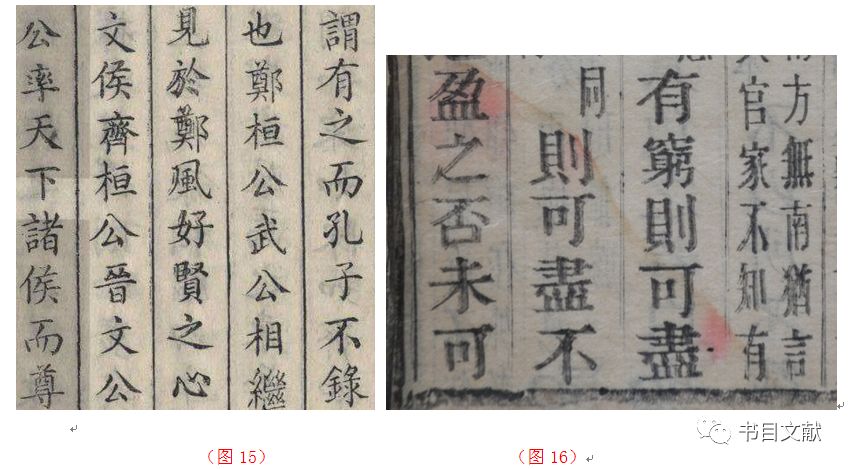 謂有之而孔子不錄
也鄭桓公武公相繼
見於鄭風好賢之心
文侯齊桓公晉文公
公率天下諸侯而尊
方無南猶言
官家不知有
有窮則可盡
同
則可盡不
盈之否未可
(图 15)
(图 16)
书目文献